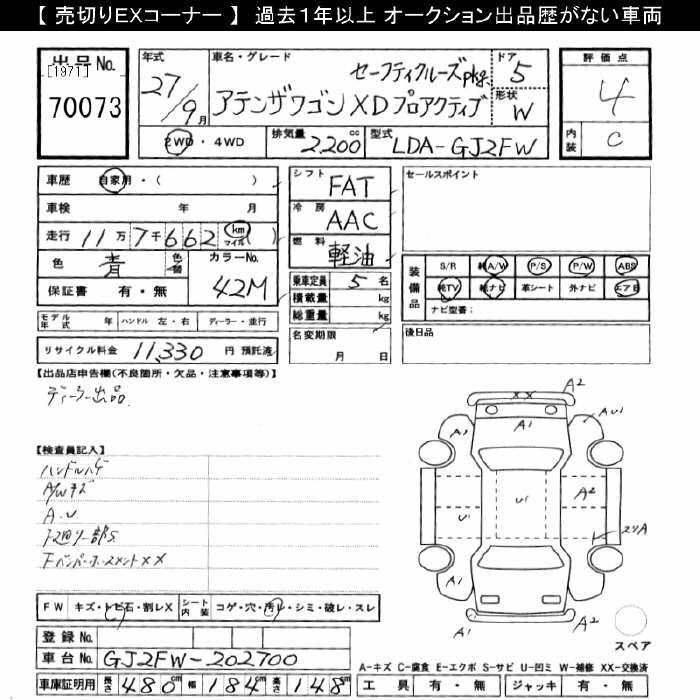 【売切りEXコーナー】 過去1年以上 オークション出品歴がない車両
出品No.
[1971]
70073
年式
27/9月
車名・グレード
セーフティクルーズpkg.
アテンザワゴン XD プロアクティブ
ドア
5
形状
W
2WD・4WD
排気量 2,200cc
型式 LDA-GJ2FW
評価点
4
内装 C
車歴 自家用・( )
車検 年 月
走行 11万7千662 km マイル
色 青 色替
カラーNo. 42M
保証書 有・無
シフト FAT
冷房 AAC
燃料 軽油
乗車定員 5名
積載量 kg
総重量 kg
名変期限
月 日
セールスポイント
装備品
S/R 純A/W P/S P/W ABS
純TV 純ナビ 革シート 外ナビ エアB
ナビ型番:
後日品
モデル年式 年 ハンドル 左・右 ディーラー・並行
リサイクル料金 11,330円 預託済
【出品店申告欄(不良箇所・欠品・注意事項等)】
ディーラー出品
【検査員記入】
ハンドルハゲ
A/Wキズ
A.U.
Fバンパーホースメント××
FW キズ・トビ石・割レX
シート内装 コゲ・穴・汚レ・シミ・破レ・スレ
登録No.
車台No. GJ2FW-202700
車庫証明用 長さ 480cm 幅 184cm 高さ 148cm
A2
XX
A1
A1
AU1
U1
U1
A2
A1
A1
A2
スペア
A-キズ C-腐食 E-エクボ S-サビ U-凹ミ W-補修 XX-交換済
工具 有・無 ジャッキ 有・無